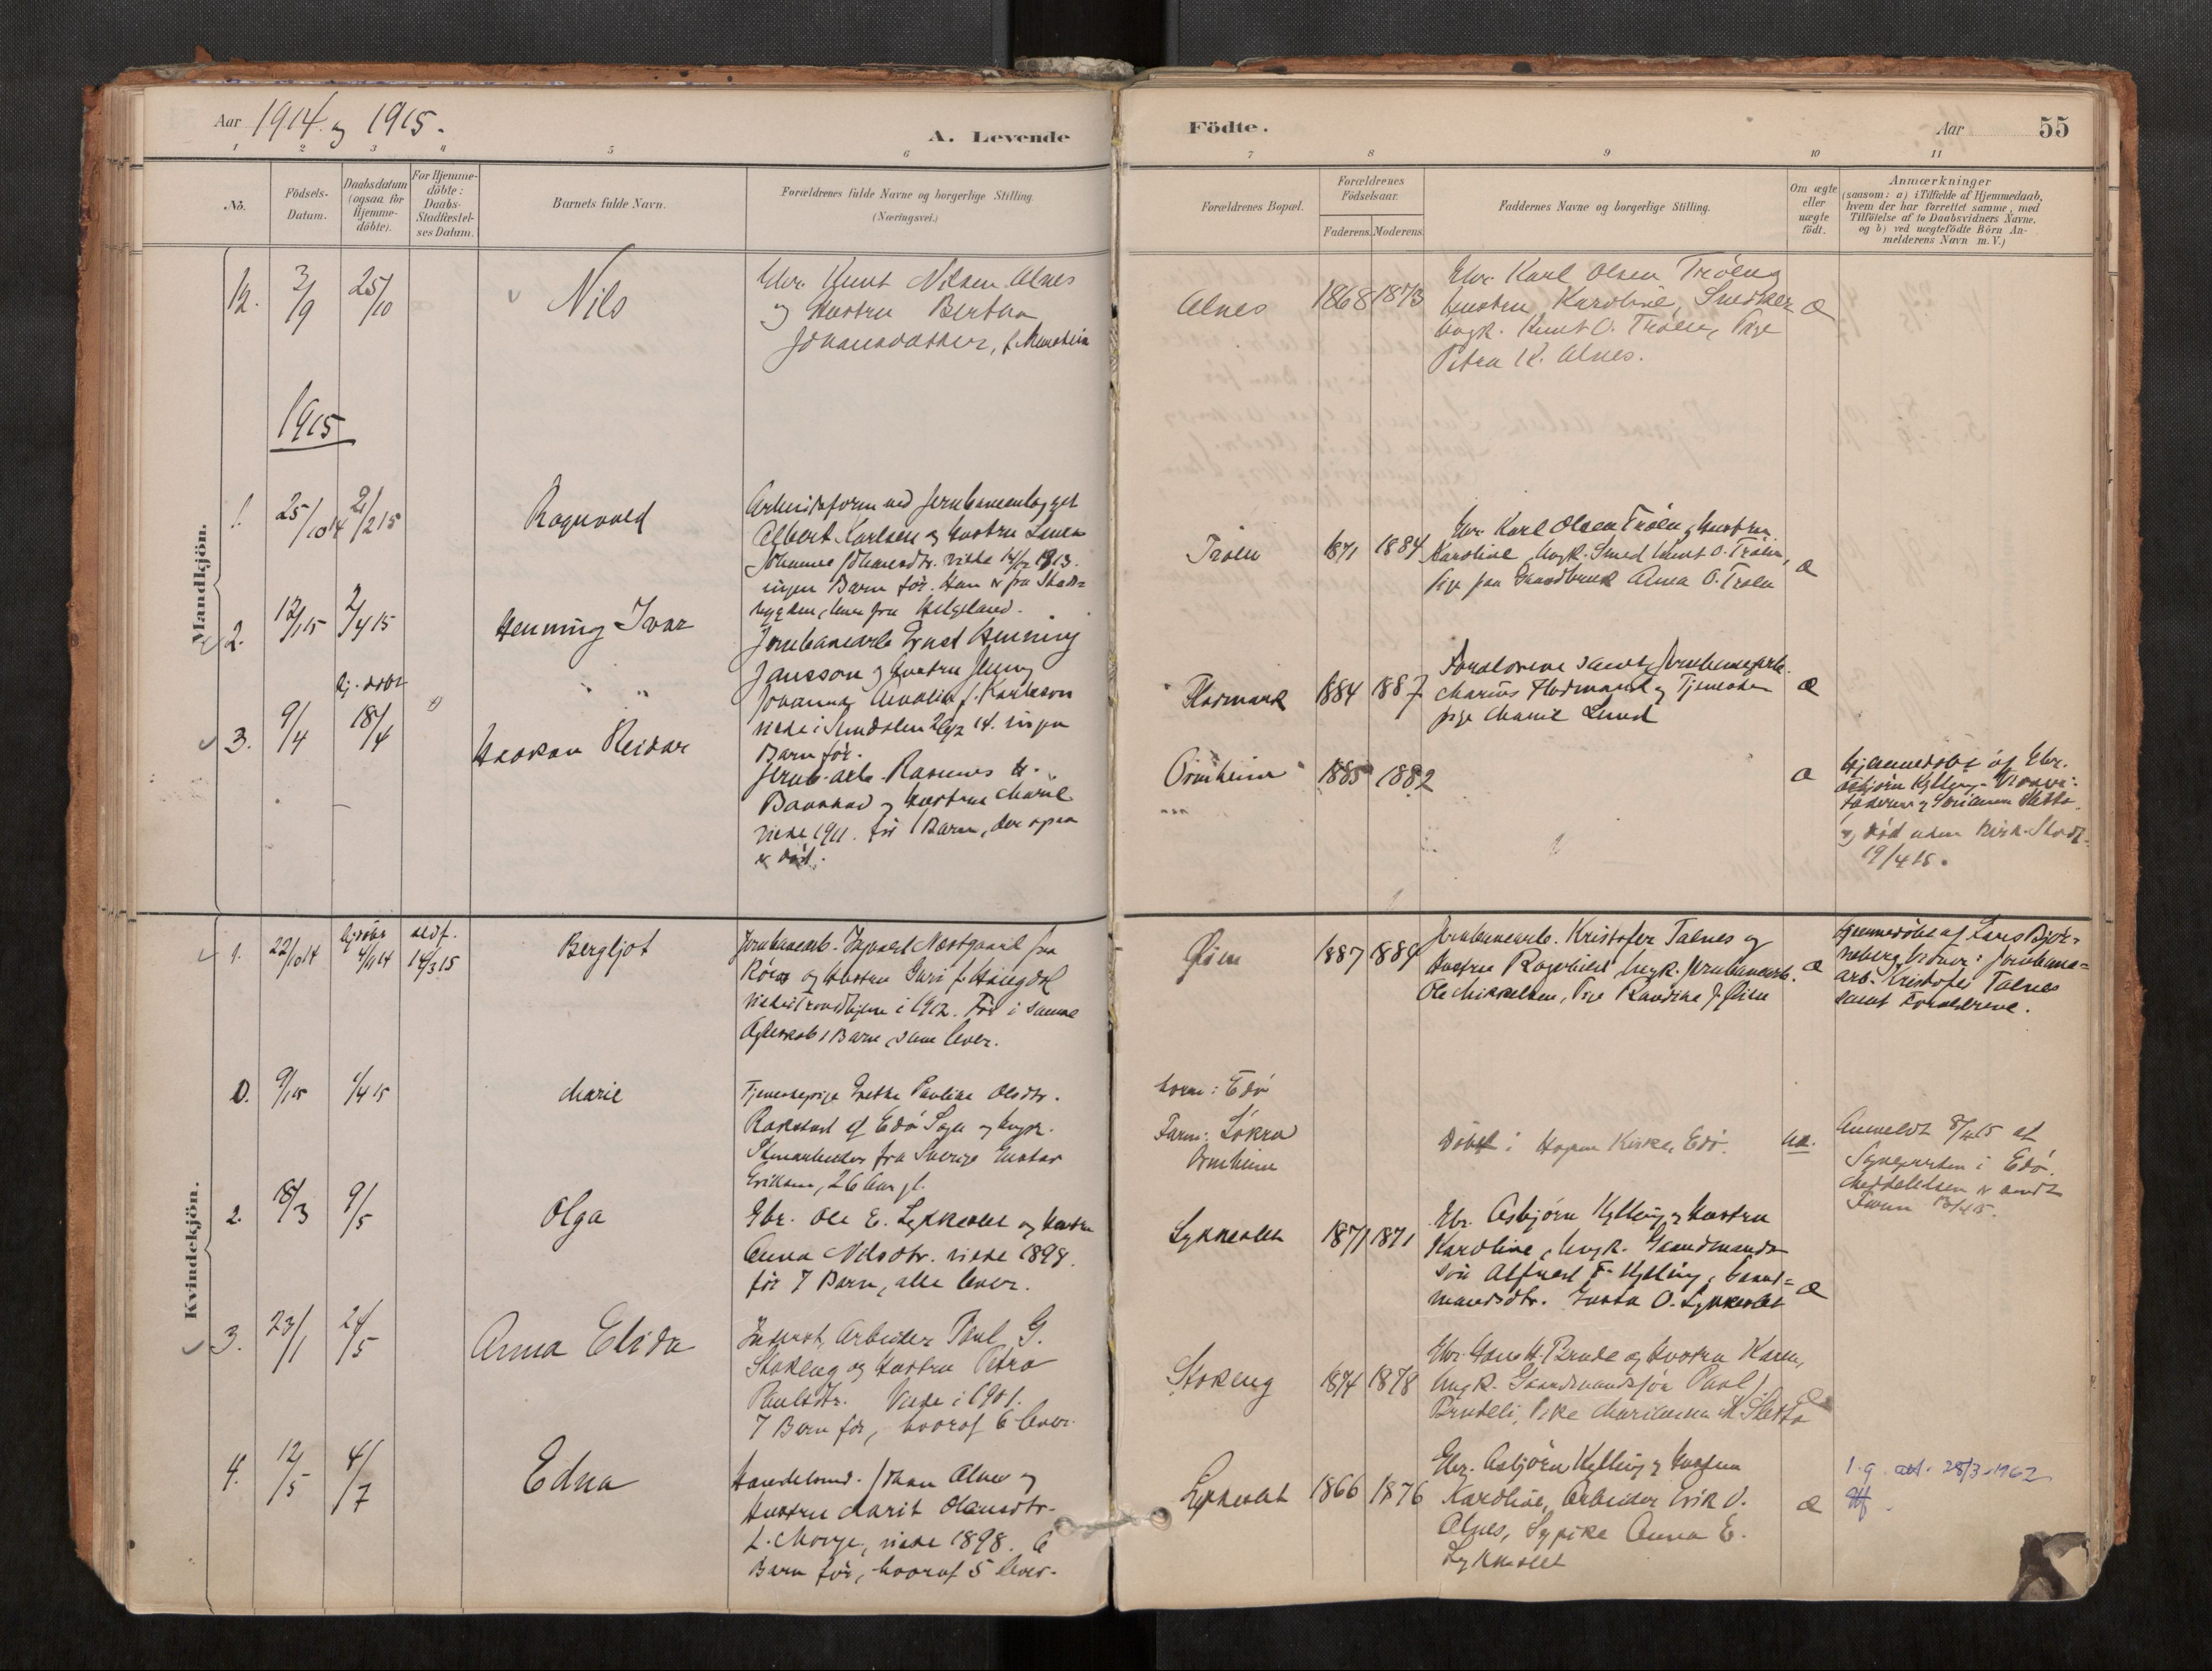 Aar 1914 og 1915.
A. Levende
Födte.
Aar
55
1 2 3 4 5 6 7 8 9 10 11
No.
Födsels-
Datum.
Daabsdatum
(ogsaa for
Hjemme-
döbte).
For Hjemme-
döbte:
Daabs-
Stadfæstel-
ses Datum.
Barnets fulde Navn.
Forældrenes fulde Navne og borgerlige Stilling.
(Næringsvei.)
Forældrenes Bopæl.
Forældrenes
Födselsaar.
Faderens. Moderens.
Faddernes Navne og borgerlige Stilling.
Om ægte
eller
uægte
födt.
Anmærkninger
(saasom: a) i Tilfælde af Hjemmedaab,
hvem der har forrettet samme, med
Tilföielse af to Daabsvidners Navne,
og b) ved uægtefödte Börn An-
melderens Navn m. V.)
Mandkjön.
12. 3/9 25/10
Nils
Gbr. Knut Nilsen Alnes
og Hustru Bertha
Alnes
1868 1873
Gbr. Karl Olsen Tröen og
Hustru Karoline, Snedker
Ungk. Knut O. Tröen, Pige
Petra K. Alnes.
Æ
1915
1. 25/10 14 21/2 15
Ragnvald
Arbeidsform. ved Jernbaneanlægget
Albert Karlsen og Hustru
Johanna Johansdtr. viede 1913.
ingen Barn før. Han er fra Stads-
bygden, hun fra Helgeland.
Tröen
1871 1884
Gbr. Karl Olsen Tröen, Hustru
Karoline, Ungk. Smed Knut O. Tröen,
Pige paa Gaardbruk Anna O. Tröen
Æ
2. 12/1 15 2/4 15
Henning Ivar
Jernbanearb. Ernst Henning
Jansson og Hustru Jenny
Johanna Amalia f. Karlsson
viede i Sundalen 14. ingen
Barn før.
Flatmark
1884 1887
Forældrene samt Jernbanearb.
Marius Flatmark og Tjeneste-
pige Marie Lund
Æ
3. 9/4 hj. døbt 18/4
Haakon Reidar
Jernb. arb. Rasmus H.
og Hustru Marie
viede 1911. før 1 Barn, der ogsaa
er død.
Ormheim
1885 1882
Æ
Hjemmedøbt af Gbr.
Asbjörn Kylling.
Faderen og Sletta
og død uden Kirk. Stadf.
19/4 15.
Kvindekjön.
1. 22/10 14 hj. døbt 4/11 14 stadf. 14/3 15
Bergljot
Jernbanearb. Ingvald Næstgaard fra
Röros og Hustru Guri f. Haugdal
viede i Trondhjem i 1912. Før i samme
Ægteskab 1 Barn, som lever.
Øien
1887 1884
Jernbanearb. Kristofer Talnes og
Hustru Ragnhild, Ungk. Jernbanearb.
Ole Mikkelsen, Pige Randine J. Øien
Æ
Hjemmedøbt af Lars Bjør-
neberg. Vidner: Jernbane-
arb. Kristofer Talnes
samt Forældrene.
0. 9/1 15 1/4 15
Marie
Tjenestepige Grethe Pauline Olsdtr.
Rokstad af Edö Sogn og Ungk.
Stenarbeider fra Sverige Gustav
Erikson, 26 Aar gl.
hans: Edö
Ormheim
Døbt i Hopen Kirke, Edö.
uæ.
Anmeldt 8/4 15 af
Sognepresten i Edö.
Meddelelsen er sendt
13/4 15.
2. 18/3 9/5
Olga
Gbr. Ole E. Lykkeslet og Hustru
Anna Nilsdtr. viede 1898.
før 7 Barn, alle lever.
Lykkeslet
1871 1871
Gbr. Asbjörn Kylling og Hustru
Karoline, Ungk. Gaardmands-
søn Alfred F. Kylling, Gaard-
mandsdtr. Gusta O. Lykkeslet
Æ
3. 23/1 24/5
Anna Elida
Inderst, Arbeider Paul G.
Stokeng og Hustru Petra
Paulsdtr. Viede i 1901.
7 Barn før, hvoraf 6 lever.
Stokeng
1874 1878
Gbr. H. Brude og Hustru Karen,
Ungk. Gaardmandssön Paul J.
Brudeli, Pike Marianna K. Sletta
Æ
4. 12/5 4/7
Edna
Handelsmd. Johan Alnes og
Hustru Marit Olausdtr.
viede 1898. 6
Barn før, hvoraf 5 lever.
Lykkeslet
1866 1876
Gbr. Asbjörn Kylling og Hustru
Karoline, Arbeider Erik O.
Alnes, Sypike Anna E.
Lykkeslet
Æ
l. g. att. 28/3-1962